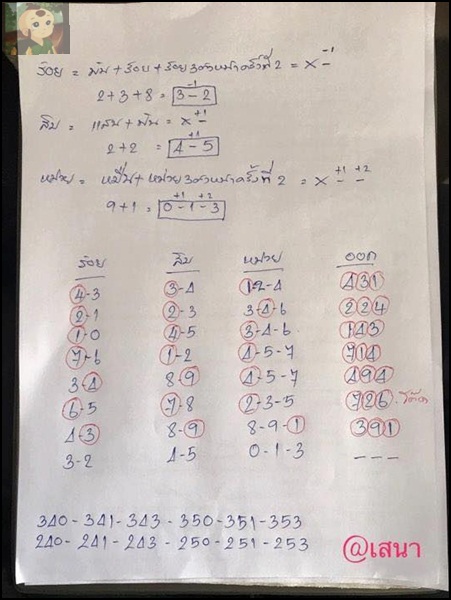 ร้อย = พัน + ร้อย + ร้อย 3ตัวหน้าครั้งที่ 2 = x -1
2 + 3 + 8 = 3 - 2 -1
สิบ = แสน + พัน = x +1
2 + 2 = 4 - 5 +1
หน่วย = หมื่น + หน่วย 3ตัวหน้าครั้งที่ 2 = x +1 +2
9 + 1 = 0 - 1 - 3 +1 +2
ร้อย สิบ หน่วย ออก
4-3 3-4 1-2-4 431
2-1 2-3 3-4-6 224
1-0 4-5 3-4-6 143
7-6 1-2 4-5-7 714
3-4 8-9 4-5-7 494
6-5 7-8 2-3-5 726
4-3 8-9 8-9-1 391
3-2 4-5 0-1-3 ---
340 - 341 - 343 - 350 - 351 - 353
240 - 241 - 243 - 250 - 251 - 253
@เสนา